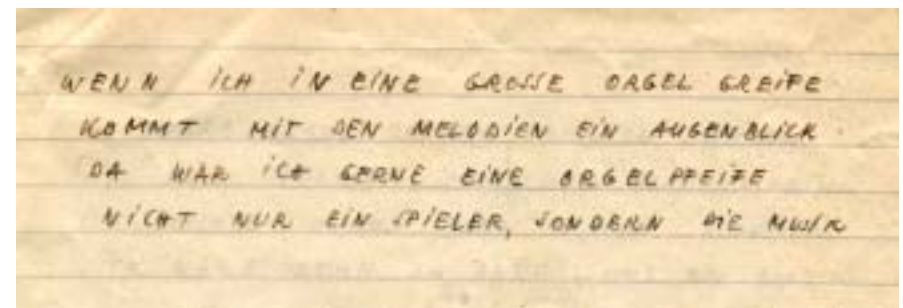 WENN ICH IN EINE GROSSE ORGEL GREIFE
KOMMT MIT DEN MELODIEN EIN AUGENBLICK
DA WAR ICH GERNE EINE ORGELPFEIFE
NICHT NUR EIN SPIELER, SONDERN DIE MUSIK